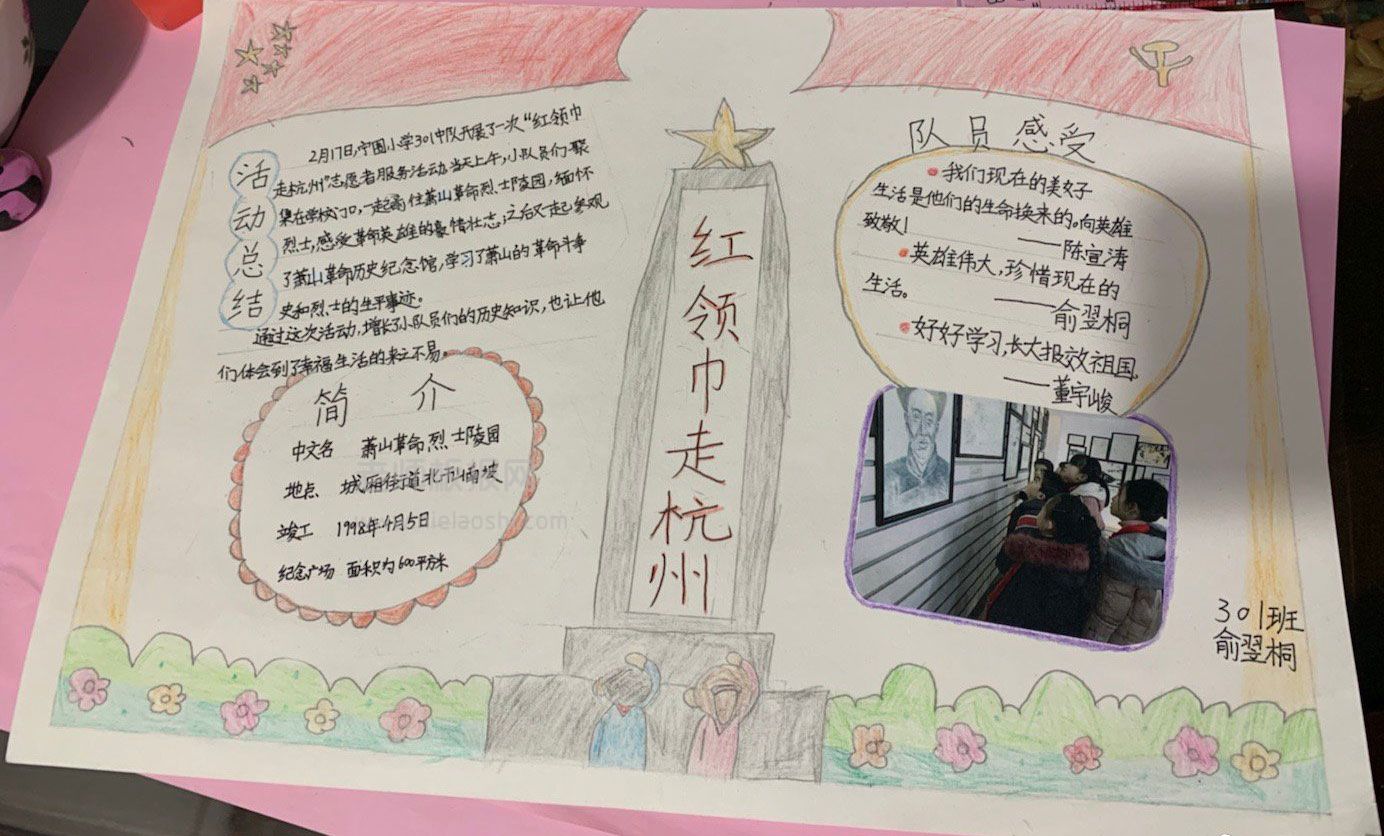 活动总结
2月17日，宁围小学301中队开展了一次“红领巾
走杭州”志愿者服务活动。当天上午，小队员们聚
集在学校门口，一起前往萧山革命烈士陵园，缅怀
烈士，感受革命英雄的豪情壮志，之后又一起参观
了萧山革命历史纪念馆，学习了萧山的革命斗争
史和烈士的生平事迹。
通过这次活动，增长了小队员们的历史知识，也让他
们体会到了幸福生活的来之不易。
简介
中文名 萧山革命烈士陵园
地点 城厢街道北干山南坡
竣工 1998年4月5日
纪念广场 面积约600平方米
红领巾走杭州
队员感受
我们现在的美好
生活是他们的生命换来的。向英雄
致敬！
——陈宣涛
英雄伟大，珍惜现在的
生活。
——俞翌桐
好好学习，长大报效祖国。
——董宇峻
301班
俞翌桐